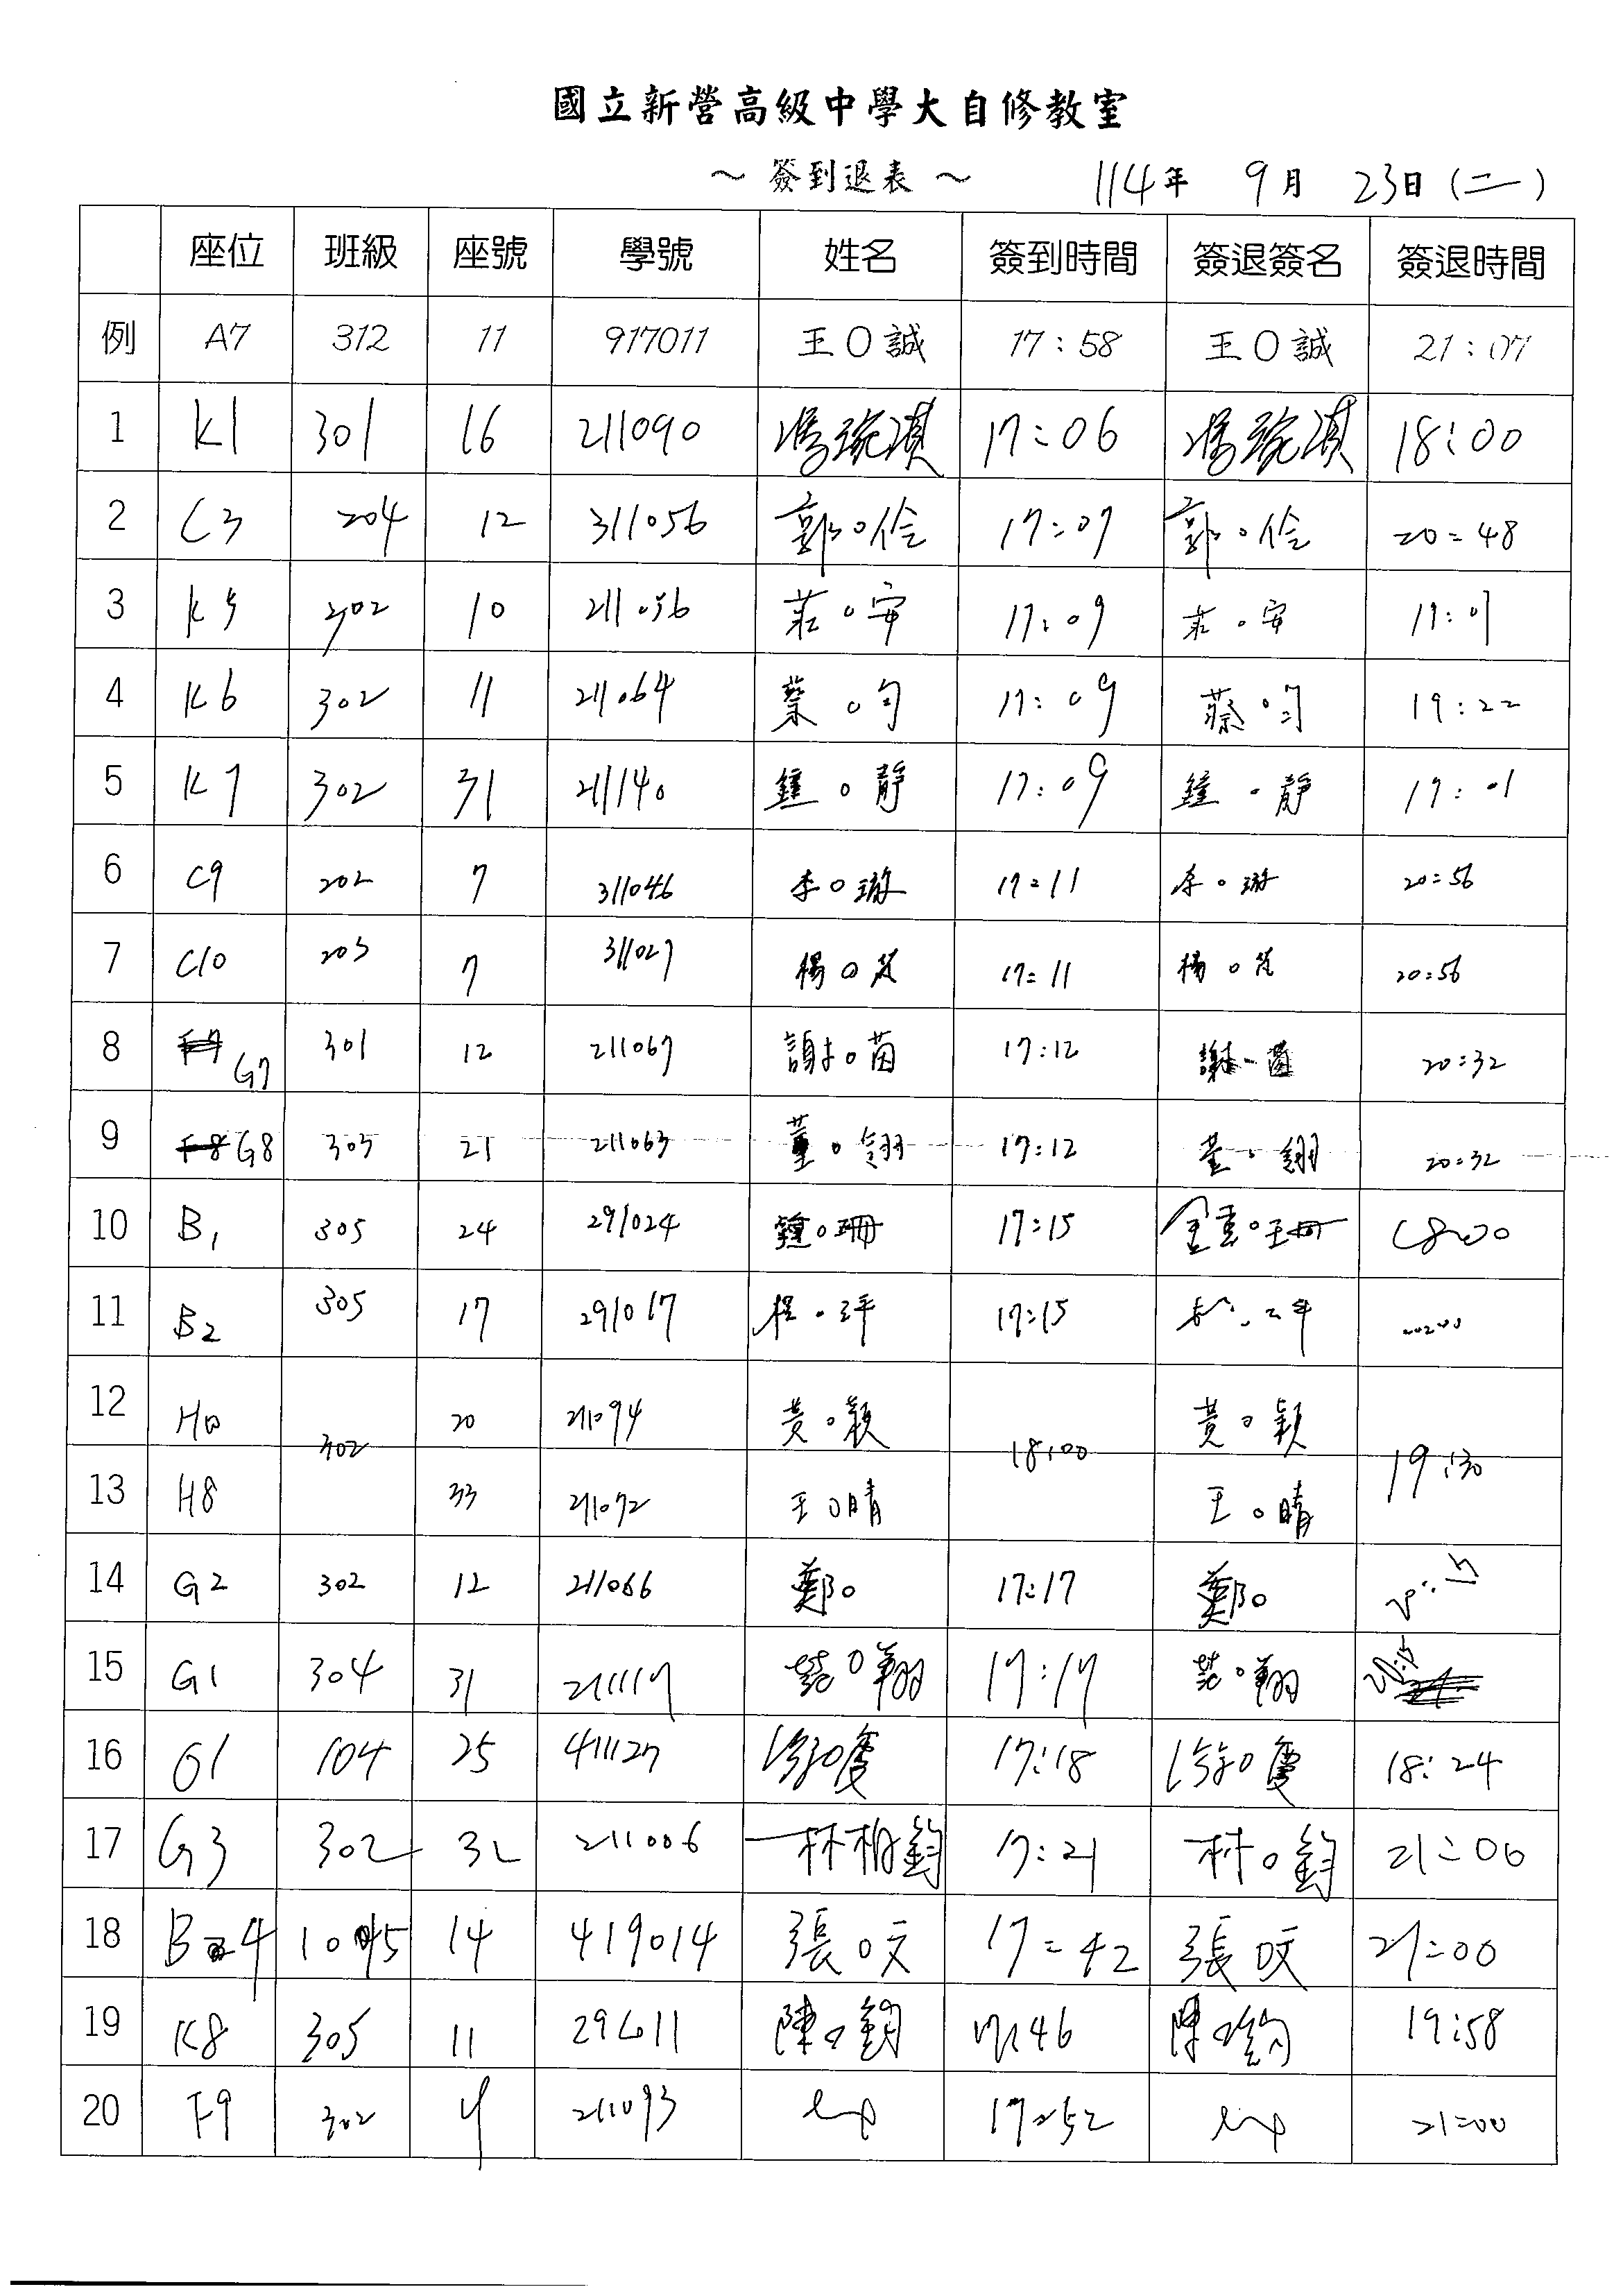 國立新營高級中學大自修教室
～ 簽到退表 ～ 114年 9月 23日(二)
座位 班級 座號 學號 姓名 簽到時間 簽退簽名 簽退時間
例 A7 312 11 917011 王O誠 17:58 王O誠 21:07
1 K1 301 16 211090 馮琬淇 17:06 馮琬淇 18:00
2 C3 204 12 311056 郭O伶 17:07 郭O伶 20:48
3 K5 302 10 211056 莊O安 17:09 莊O安
4 K6 302 11 211064 蔡O勻 17:09 蔡O勻 19:22
5 K7 302 31 211140 鐘O靜 17:09 鐘O靜
6 C9 202 7 311046 李O璇 17:11 李O璇 20:56
7 C10 203 7 311027 楊O芃 17:11 楊O芃 20:56
8 G7 301 12 211067 謝O茵 17:12 謝O茵 20:32
9 G8 303 21 211063 董O翎 17:12 董O翎 20:32
10 B1 305 24 291024 鐘O珊 17:15 鐘O珊 18:00
11 B2 305 17 291017 程O玶 17:15
12 H10 302 20 211094 黃O穎 18:00 黃O穎 19:30
13 H8 33 211072 王O晴 王O晴
14 G2 302 12 211066 鄭O 17:17 鄭O
15 G1 304 31 211117 O翔 17:17 O翔
16 G1 104 25 411127 徐O慶 17:18 徐O慶 18:24
17 G3 302 32 211006 林柏鈞 17:21 林O鈞 21:00
18 B4 105 14 419014 張O文 17:42 張O文 21:00
19 K8 305 11 291011 陳O鈞 17:46 陳O鈞 19:58
20 F9 302 4 211093 17:52 21:00